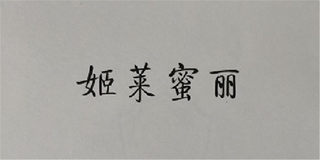 姬莱蜜丽